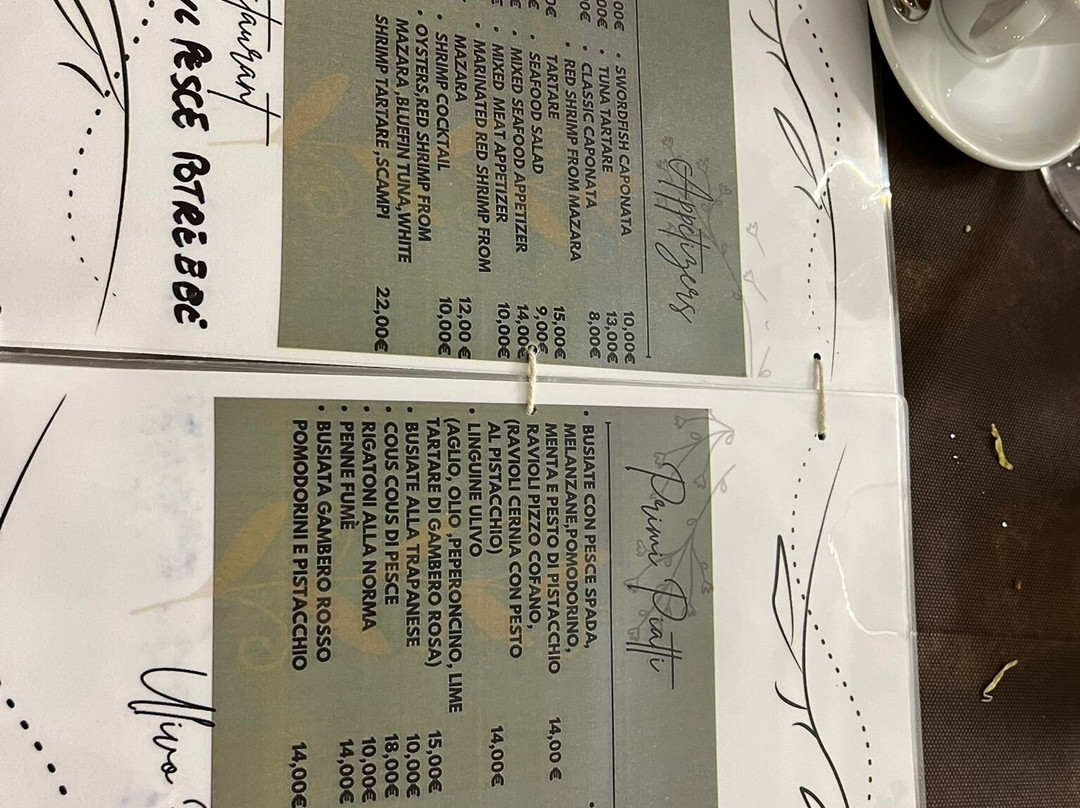 Appetizers
• SWORDFISH CAPONATA 10,00€
• TUNA TARTARE 13,00€
• CLASSIC CAPONATA 8,00€
• RED SHRIMP FROM MAZARA
TARTARE 15,00€
• SEAFOOD SALAD 9,00€
• MIXED SEAFOOD APPETIZER 14,00€
• MIXED MEAT APPETIZER 10,00€
• MARINATED RED SHRIMP FROM
MAZARA 12,00 €
• SHRIMP COCKTAIL 10,00€
• OYSTERS,RED SHRIMP FROM
MAZARA ,BLUEFIN TUNA,WHITE
SHRIMP TARTARE ,SCAMPI 22,00€
PESCE POTREBBE
Primi Piatti
• BUSIATE CON PESCE SPADA,
MELANZANE,POMODORINO,
MENTA E PESTO DI PISTACCHIO 14,00 €
• RAVIOLI PIZZO COFANO,
(RAVIOLI CERNIA CON PESTO
AL PISTACCHIO) 14,00€
• LINGUINE ULIVO
(AGLIO, OLIO ,PEPERONCINO, LIME
TARTARE DI GAMBERO ROSA) 15,00€
• BUSIATE ALLA TRAPANESE 10,00€
• COUS COUS DI PESCE 18,00€
• RIGATONI ALLA NORMA 10,00€
• PENNE FUMÈ 14,00€
• BUSIATA GAMBERO ROSSO
POMODORINI E PISTACCHIO 14,00€
Ulivo